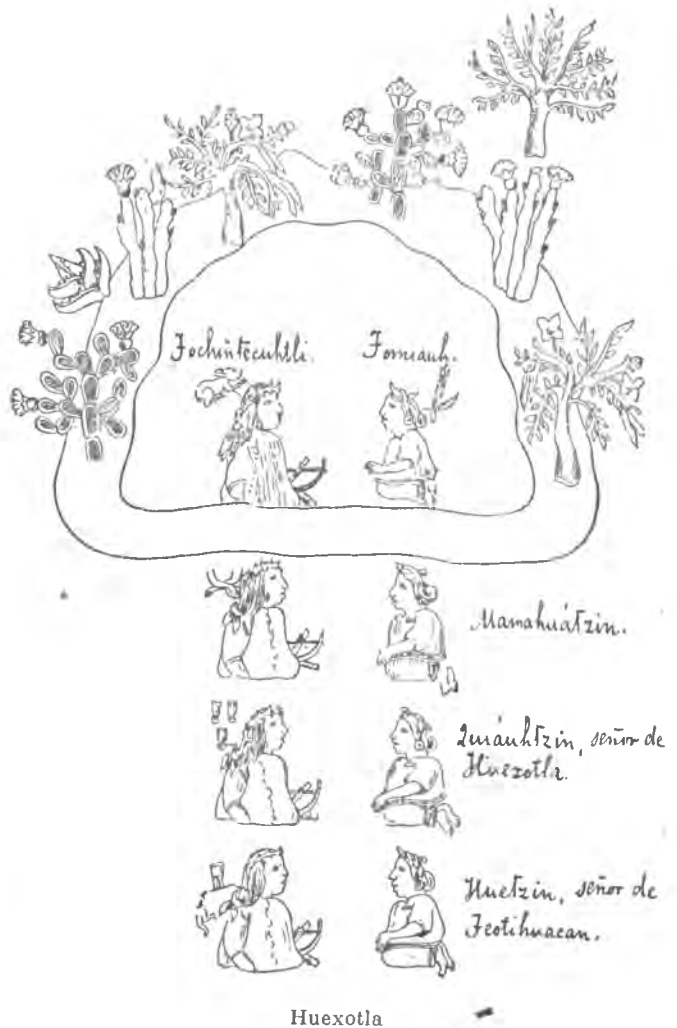 Tochintecuhtli. Tomiauh.
Mamahuátzin.
Quiáuhtzin, señor de
Huexotla.
Huetzin, señor de
Teotihuacan.
Huexotla